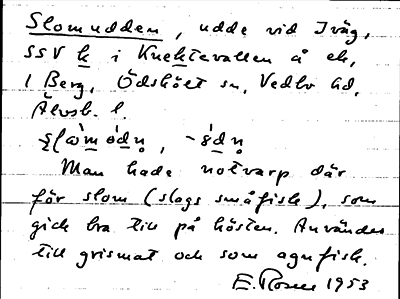 Slomudden, udde vid Iväg,
SSV k i Knektevallen å ek,
1 Berg, Ödskölt sn, Vedbo hd,
Älvsb. l.
Man hade notvarp där
för slom (slags småfisk), som
gick bra till på hösten. Användes
till grismat och som agnfisk.
E. Rosen 1953